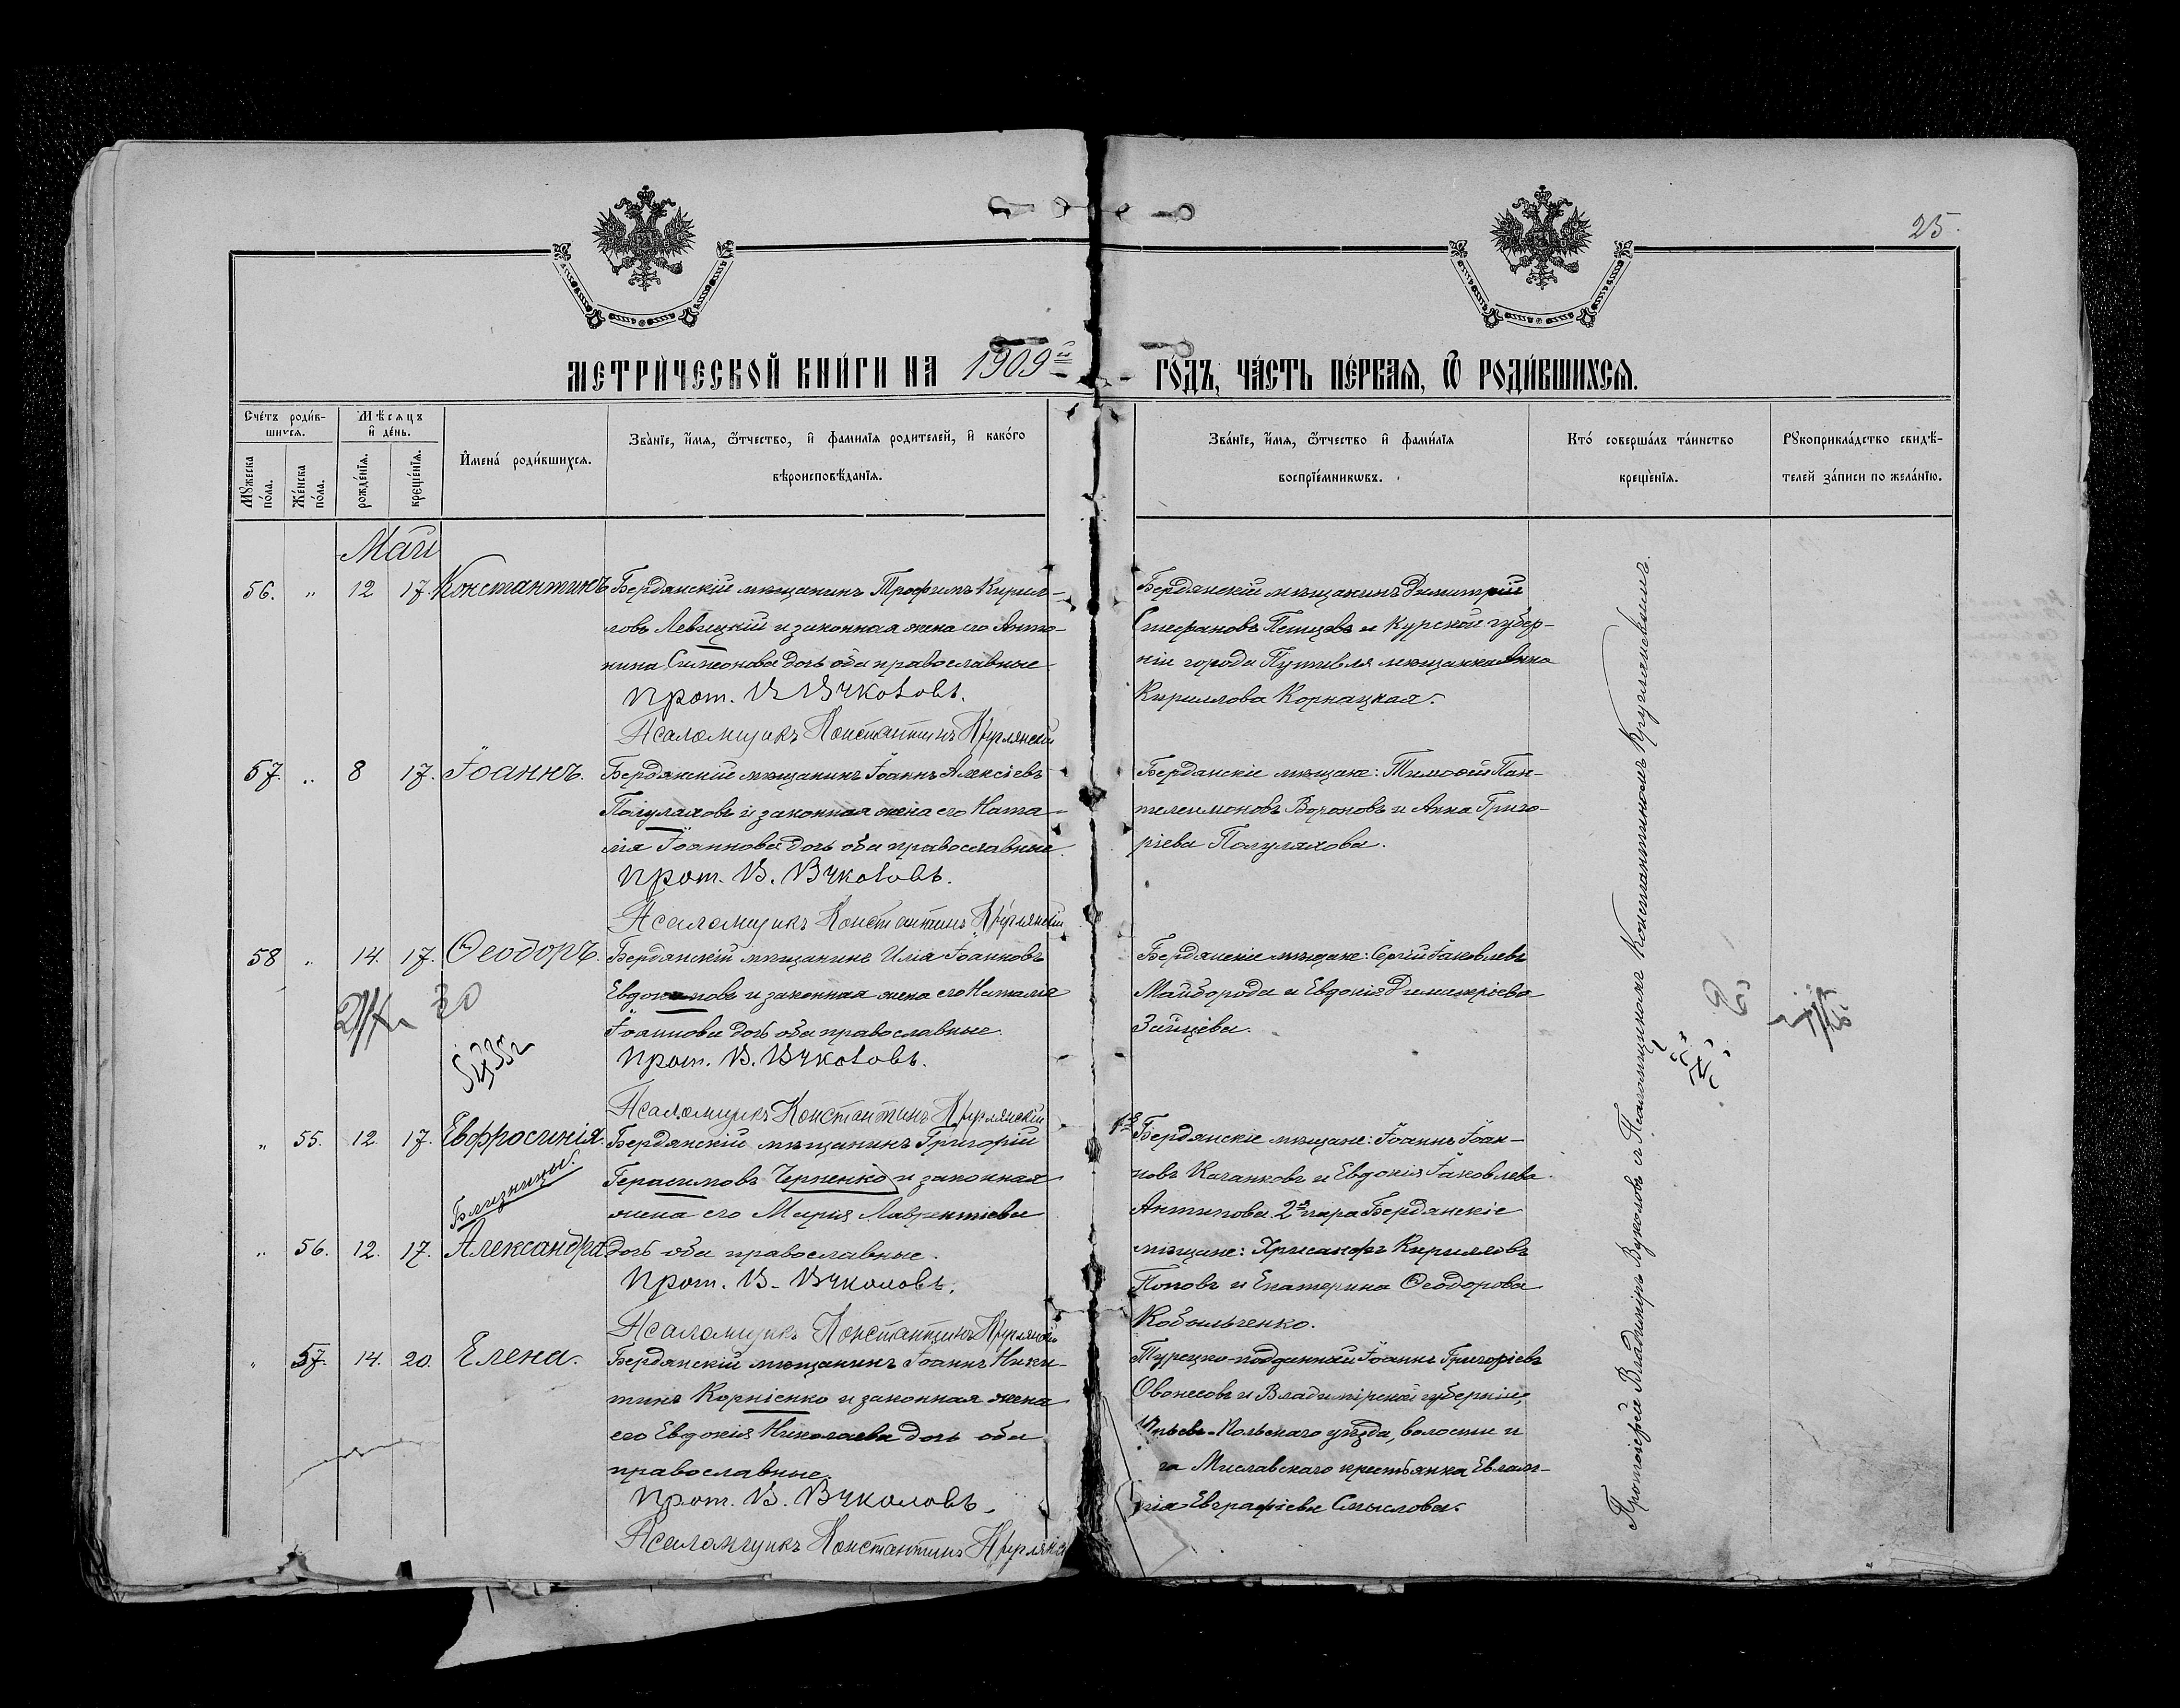 25.
МЕТРИ́ЧЕСКОЙ КНИ́ГИ НА 1909й
ГО́ДЪ, ЧА́СТЬ ПЕ́РВАѦ, Ѿ РОДИ́ВШИХСѦ.
Сче́тъ роди́в-
шихсѧ.
Мꙋ́жеска по́ла.
Же́нска по́ла.
Мѣсѧцъ
и҆ де́нь.
рожде́нїѧ.
креще́нїѧ.
И҆мена́ роди́вшихсѧ.
Зва́нїе, и҆́мѧ, ѻ҆́тчество, и҆ фамилїѧ родителей, и҆ како́гѡ
вѣроисповѣ́данїѧ.
Зва́нїе, и҆́мѧ, ѻ҆́тчество и҆ фами́лїѧ
воспрїе́мникѡвъ.
Кто́ соверша́лъ та́инство
креще́нїѧ.
Рꙋкоприкла́дство свидѣ́-
телей за́писи по жела́нїю.
Май
56. „ 12 17. Константинъ
Бердянскій мѣщанинъ Трофимъ Кирил-
ловъ Левицкій и законная жена его Анто-
нина Симеонова дочь оба православные
Прот. В. Вуколовъ.
Псаломщикъ Константинъ Круглянскій
Бердянскій мѣщанинъ Димитрій
Стефановъ и Курской губер-
ніи города Путивля мѣщанка Анна
Кириллова Корнацкая.
57. „ 8 17. Іоаннъ.
Бердянскій мѣщанинъ Іоаннъ Алексіевъ
Полуляховъ и законная жена его Ната-
лія Іоаннова дочь оба православные
Прот. В. Вуколовъ.
Псаломщикъ Константинъ Круглянскій
Бердянскіе мѣщане: Тимофей Пан-
телеимоновъ Вороновъ и Анна Григо-
ріева Полуляхова.
58 „ 14. 17. Ѳеодоръ.
Бердянскій мѣщанинъ Илія Іоанновъ
Евдокимовъ и законная жена его Наталія
Іоаннова дочь оба православные.
Прот. В. Вуколовъ.
Псаломщикъ Константинъ Круглянскій
Бердянскіе мѣщане: Сергій Іаковлевъ
Майборода и Евдокія Димитріева
Зайцева.
„ 55. 12. 17. Евфросинія.
Близницы.
„ 56. 12. 17. Александра.
Бердянскій мѣщанинъ Григорій
Герасимовъ Черненко и законная
жена его Марія Лаврентіева
дочь оба православные.
Прот. В. Вуколовъ.
Псаломщикъ Константинъ Круглянскій
1я Бердянскіе мѣщане: Іоаннъ Іоан-
новъ Качанковъ и Евдокія Іаковлева
Антипова. 2я пара Бердянскіе
мѣщане: Хрисанфъ Кирилловъ
Поповъ и Екатерина Ѳеодорова
Кобыльченко.
„ 57. 14. 20. Елена.
Бердянскій мѣщанинъ Іоаннъ Ники-
тинъ Корніенко и законная жена
его Евдокія Николаева дочь оба
православные.
Прот. В. Вуколовъ.
Псаломщикъ Константинъ
Турецко-подданный Іоаннъ Григоріевъ
Овонесовъ и Владимірской губерніи,
Польскаго уѣзда, волости и
Миславскаго крестьянка Евлам-
пія Евграфіева Смыслова.
Протоіерей Владиміръ Вуколовъ съ Псаломщикомъ Константиномъ Круглянскимъ.